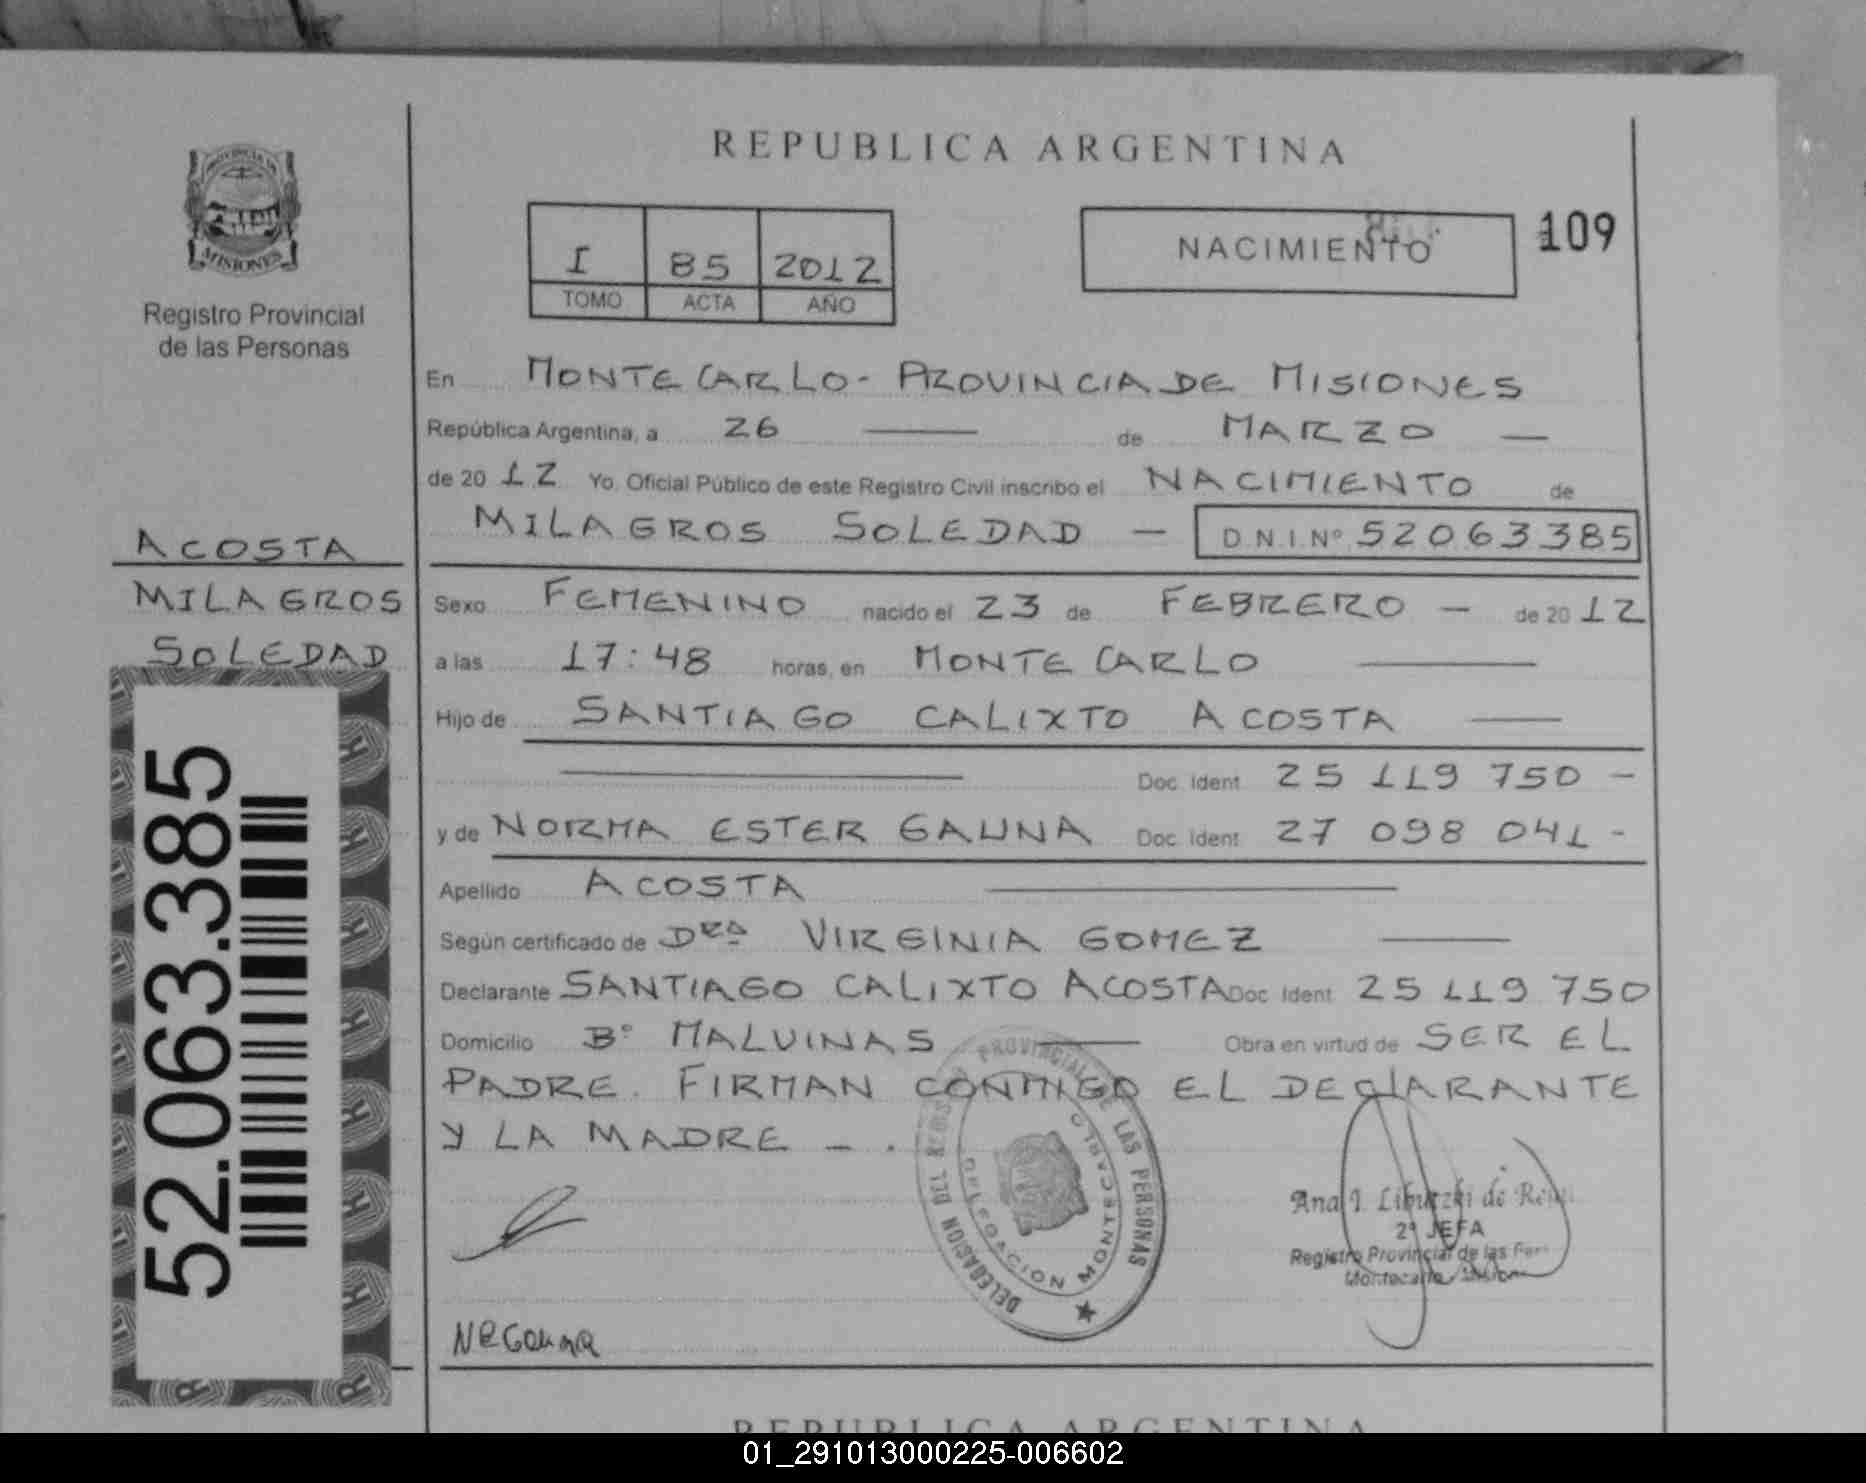 REPUBLICA ARGENTINA
PROVINCIA DE
MISIONES
Registro Provincial
de las Personas
I 85 2012
TOMO ACTA AÑO
NACIMIENTO
109
En MONTECARLO - PROVINCIA DE MISIONES
República Argentina, a 26 de MARZO
de 20 12 Yo, Oficial Público de este Registro Civil inscribo el NACIMIENTO de
MILAGROS SOLEDAD - D.N.I. Nº 52063385
ACOSTA
MILAGROS
SOLEDAD
52.063.385
Sexo FEMENINO nacido el 23 de FEBRERO - de 20 12
a las 17:48 horas, en MONTECARLO
Hijo de SANTIAGO CALIXTO ACOSTA
Doc. Ident. 25 119 750 -
y de NORMA ESTER GAUNA Doc. Ident. 27 098 041 -
Apellido ACOSTA
Según certificado de Dra VIRGINIA GOMEZ
Declarante SANTIAGO CALIXTO ACOSTA Doc. Ident. 25 119 750
Domicilio Bº MALVINAS Obra en virtud de SER EL
PADRE. FIRMAN CONMIGO EL DECLARANTE
Y LA MADRE - .
DELEGACION DEL PROVINCIAL DE LAS PERSONAS
DELEGACION MONTECARLO
Ana I. de
2º JEFA
Registro Provincial de las
Montecarlo
NEGauna
REPUBLICA ARGENTINA
01_291013000225-006602